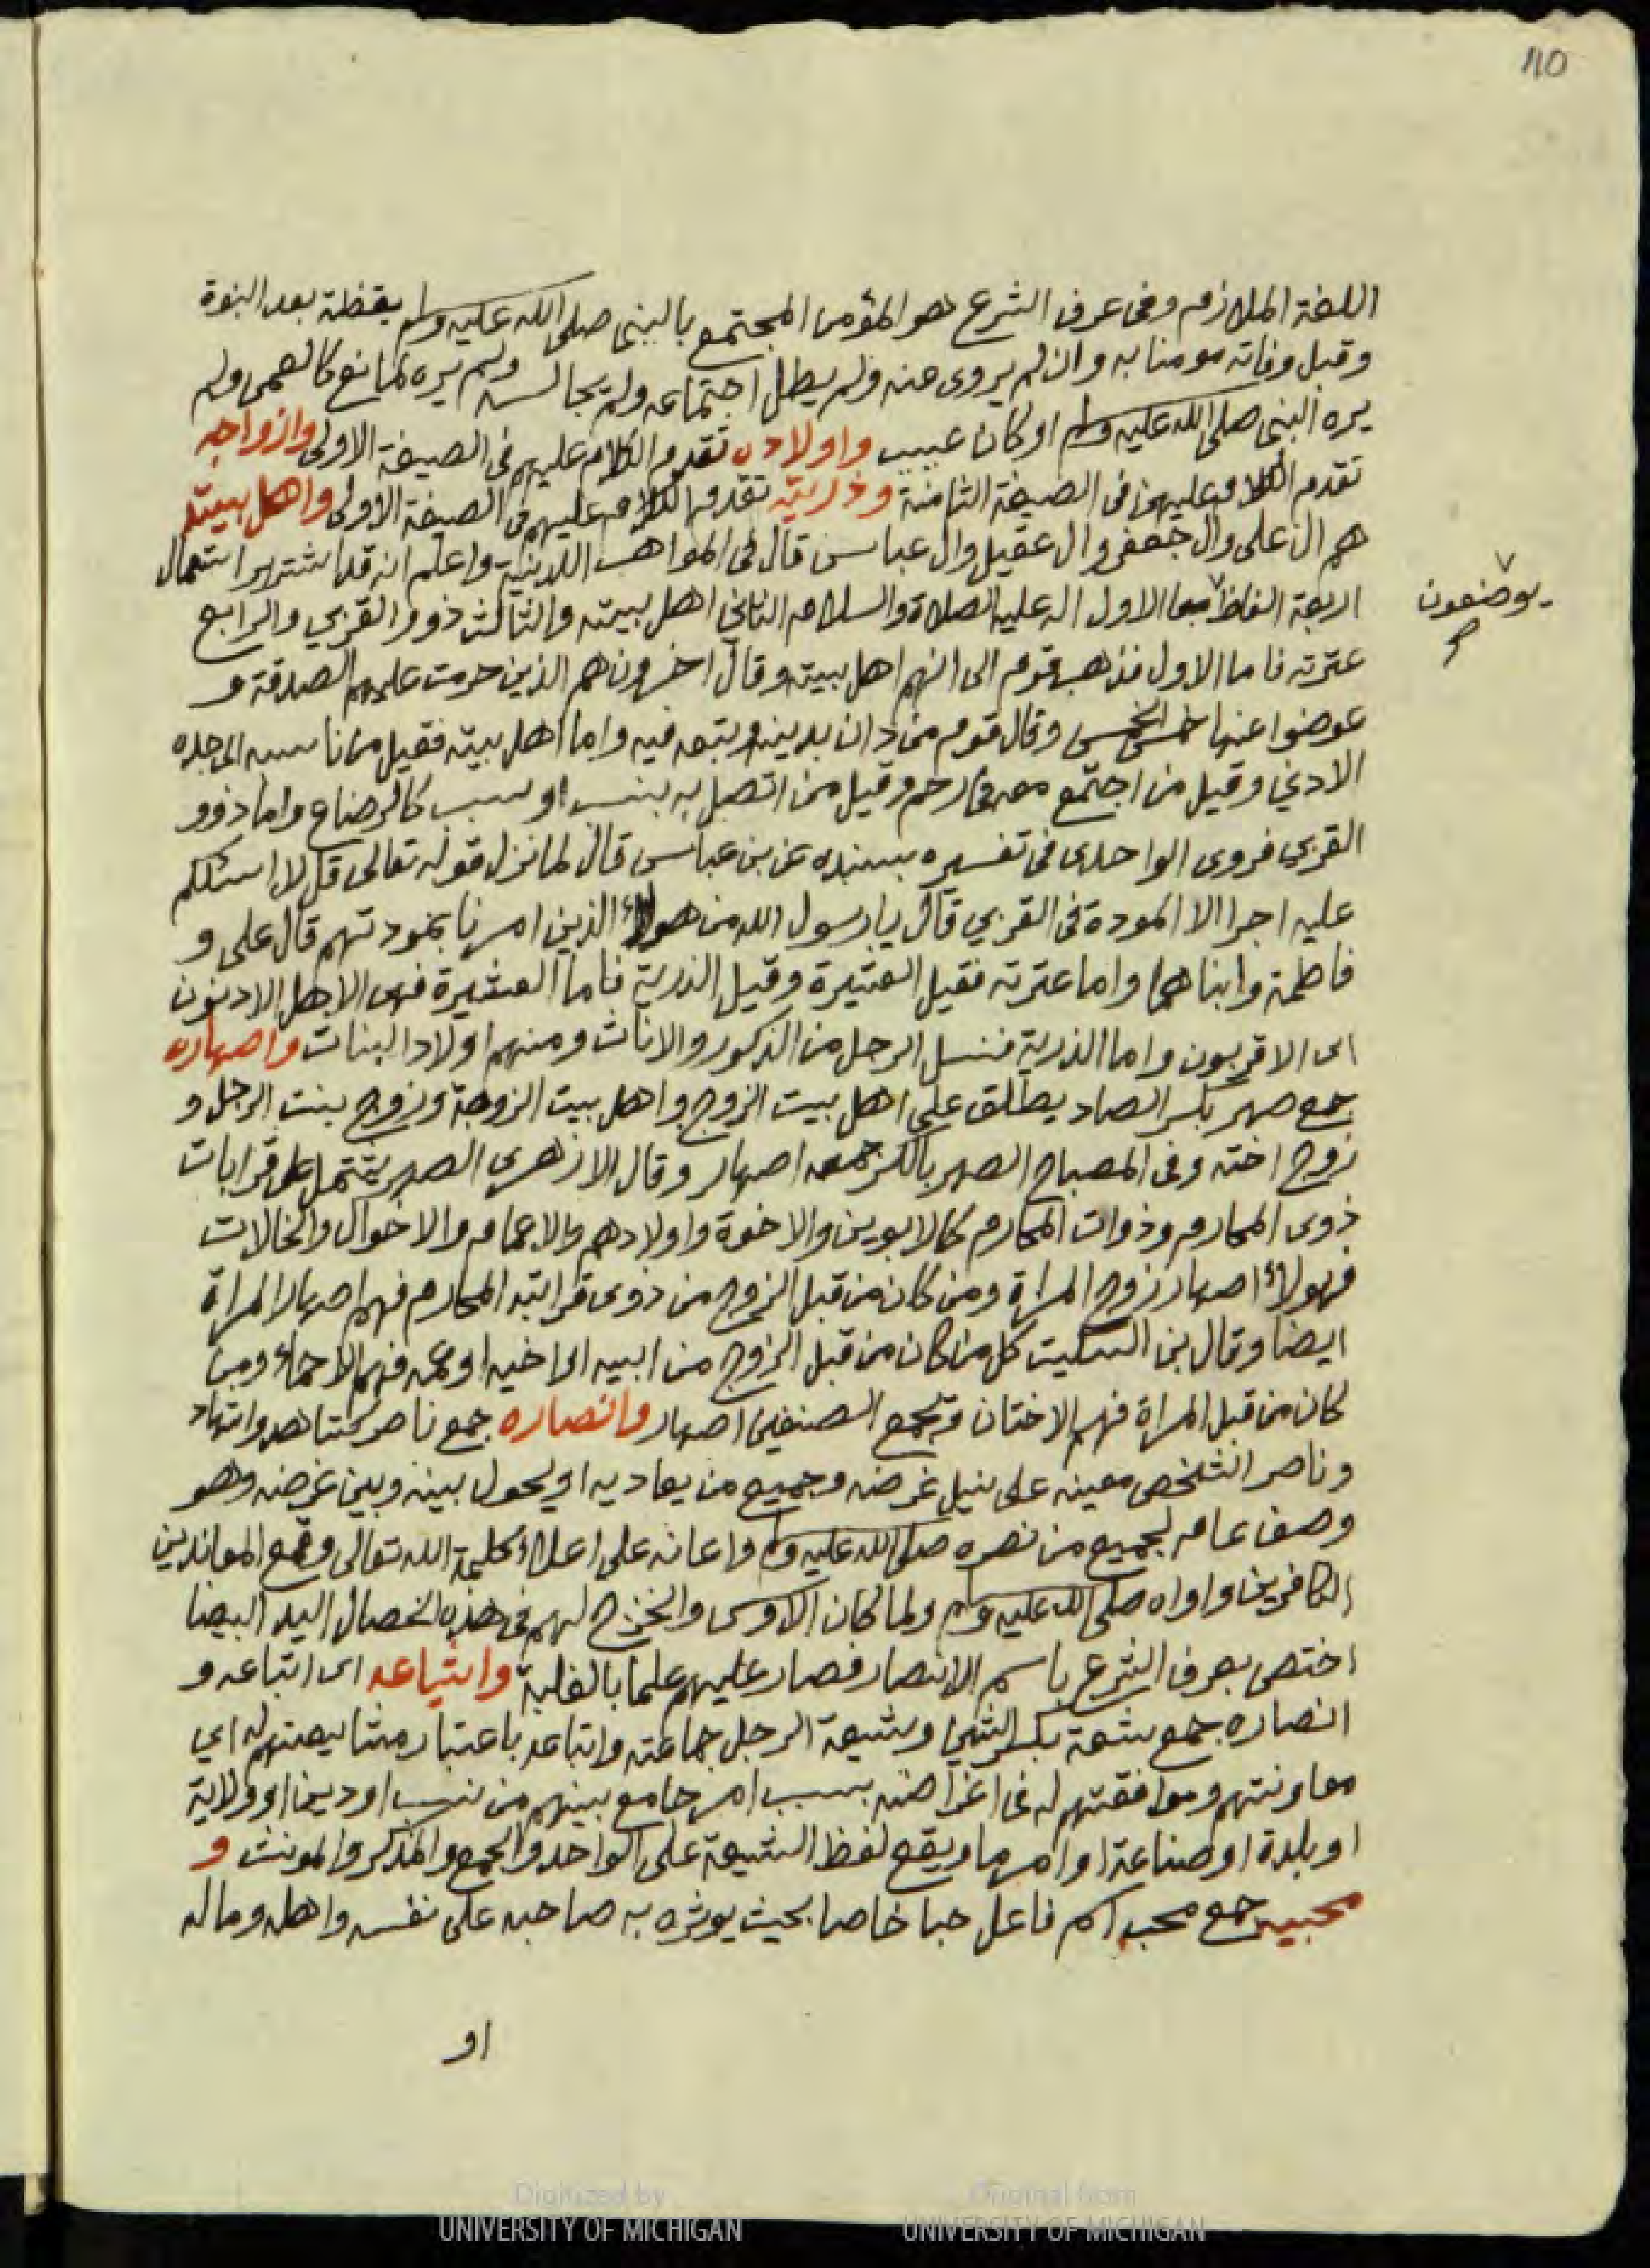 110
اللغة الملازم وفى عرف الشرع هو المؤمن المجتمع بالنبى صلى الله عليه وسلم يقظة بعد النبوة
وقبل وفاته مومنا به وان لم يروى عنه ولم يطل اجتماعه ولم يجالسه ولم يره لمانع كالعمى ولم
يره النبى صلى الله عليه وسلم او كان غيبب واولاده تقدم الكلام عليهم فى الصيغة الاولى وازواجه
تقدم الكلام عليهن فى الصيغة الثامنة وذريته تقدم الكلام عليهم فى الصيغة الاولى واهل بيته
هم ال على وال جعفر وال عقيل وال عباس قال فى المواهب اللدنية واعلم انه قد اشتهر استعمال
اربعة الفاظ بها الاول اله عليه الصلاة والسلام الثانى اهل بيته والثالث ذوو القربي والرابع
يوصفون
عترته فاما الاول فذهب قوم الى انهم اهل بيته وقال اخرون هم الذين حرمت عليهم الصدقة و
عوضوا عنها خمس الخمس وقال قوم من دان بدينه وتبعه فيه واما اهل بيته فقيل من ناسبه الى جده
الادني وقيل من اجتمع معه فى رحم وقيل من اتصل به بنسب او سبب كالرضاع واما ذوو
القربي فروى الواحدى فى تفسيره بسنده عن بن عباس قال لما نزل قوله تعالى قل لا اسئلكم
عليه اجرا الا المودة فى القربي قال يا رسول الله من هولاء الذين امرنا بمودتهم قال على و
فاطمة وابناهما واما عترته فقيل العشيرة وقيل الذرية فاما العشيرة فهى الاهل الادنون
اى الاقربون واما الذرية فنسل الرجل من الذكور والاناث ومنهم اولاد البنات واصهاره
جمع صهر بكسر الصاد يطلق على اهل بيت الزوج واهل بيت الزوجة وزوج بنت الرجل و
زوج اخته وفى المصباح الصهر بالكسر جمعه اصهار وقال الازهرى الصهر يشتمل على قرابات
ذوى المحارم وذوات المحارم كالابوين والاخوة واولادهم والاعمام والاخوال والخالات
فهولاء اصهار زوج المراة ومن كان من قبل الزوج من ذوى قرابته المحارم فهم اصهار المراة
ايضا وقال بن السكيت كل من كان من قبل الزوج من ابيه او اخيه او عمه فهم الاحماء ومن
كان من قبل المراة فهم الاختان ويجمع الصنفين اصهار وانصاره جمع ناصر كشاهد واشهاد
وناصر الشخص معينه على نيل غرضه وجميع من يعاديه او يحول بينه وبين غرضه وهو
وصف عام لجميع من نصره صلى الله عليه وسلم واعانه على اعلاء كلمة الله تعالى وقمع المعاندين
الكافرين واواه صلى الله عليه وسلم ولما كان الاوس والخزرج لهم فى هذه الخصال اليد البيضا
اختص بعرف الشرع باسم الانصار فصار عليهم علما بالغلبة واشياعه اى اتباعه و
انصاره جمع شعة بكسر الشين وشيعة الرجل جماعته واتباعه باعتبار مشايعتهم له اي
معاونتهم وموافقتهم له فى اغراضه بسبب امر جامع بينهم من نسب او دين او ولاية
او بلدة او صناعة او امر ما ويقع لفظ الشيعة على الواحد والجمع والمذكر والمونث و
محبيه جمع محب اسم فاعل حبا خاصا بحيث يوثره به صاحبه على نفسه واهله وماله
او
Digitized by
UNIVERSITY OF MICHIGAN
Original from
UNIVERSITY OF MICHIGAN